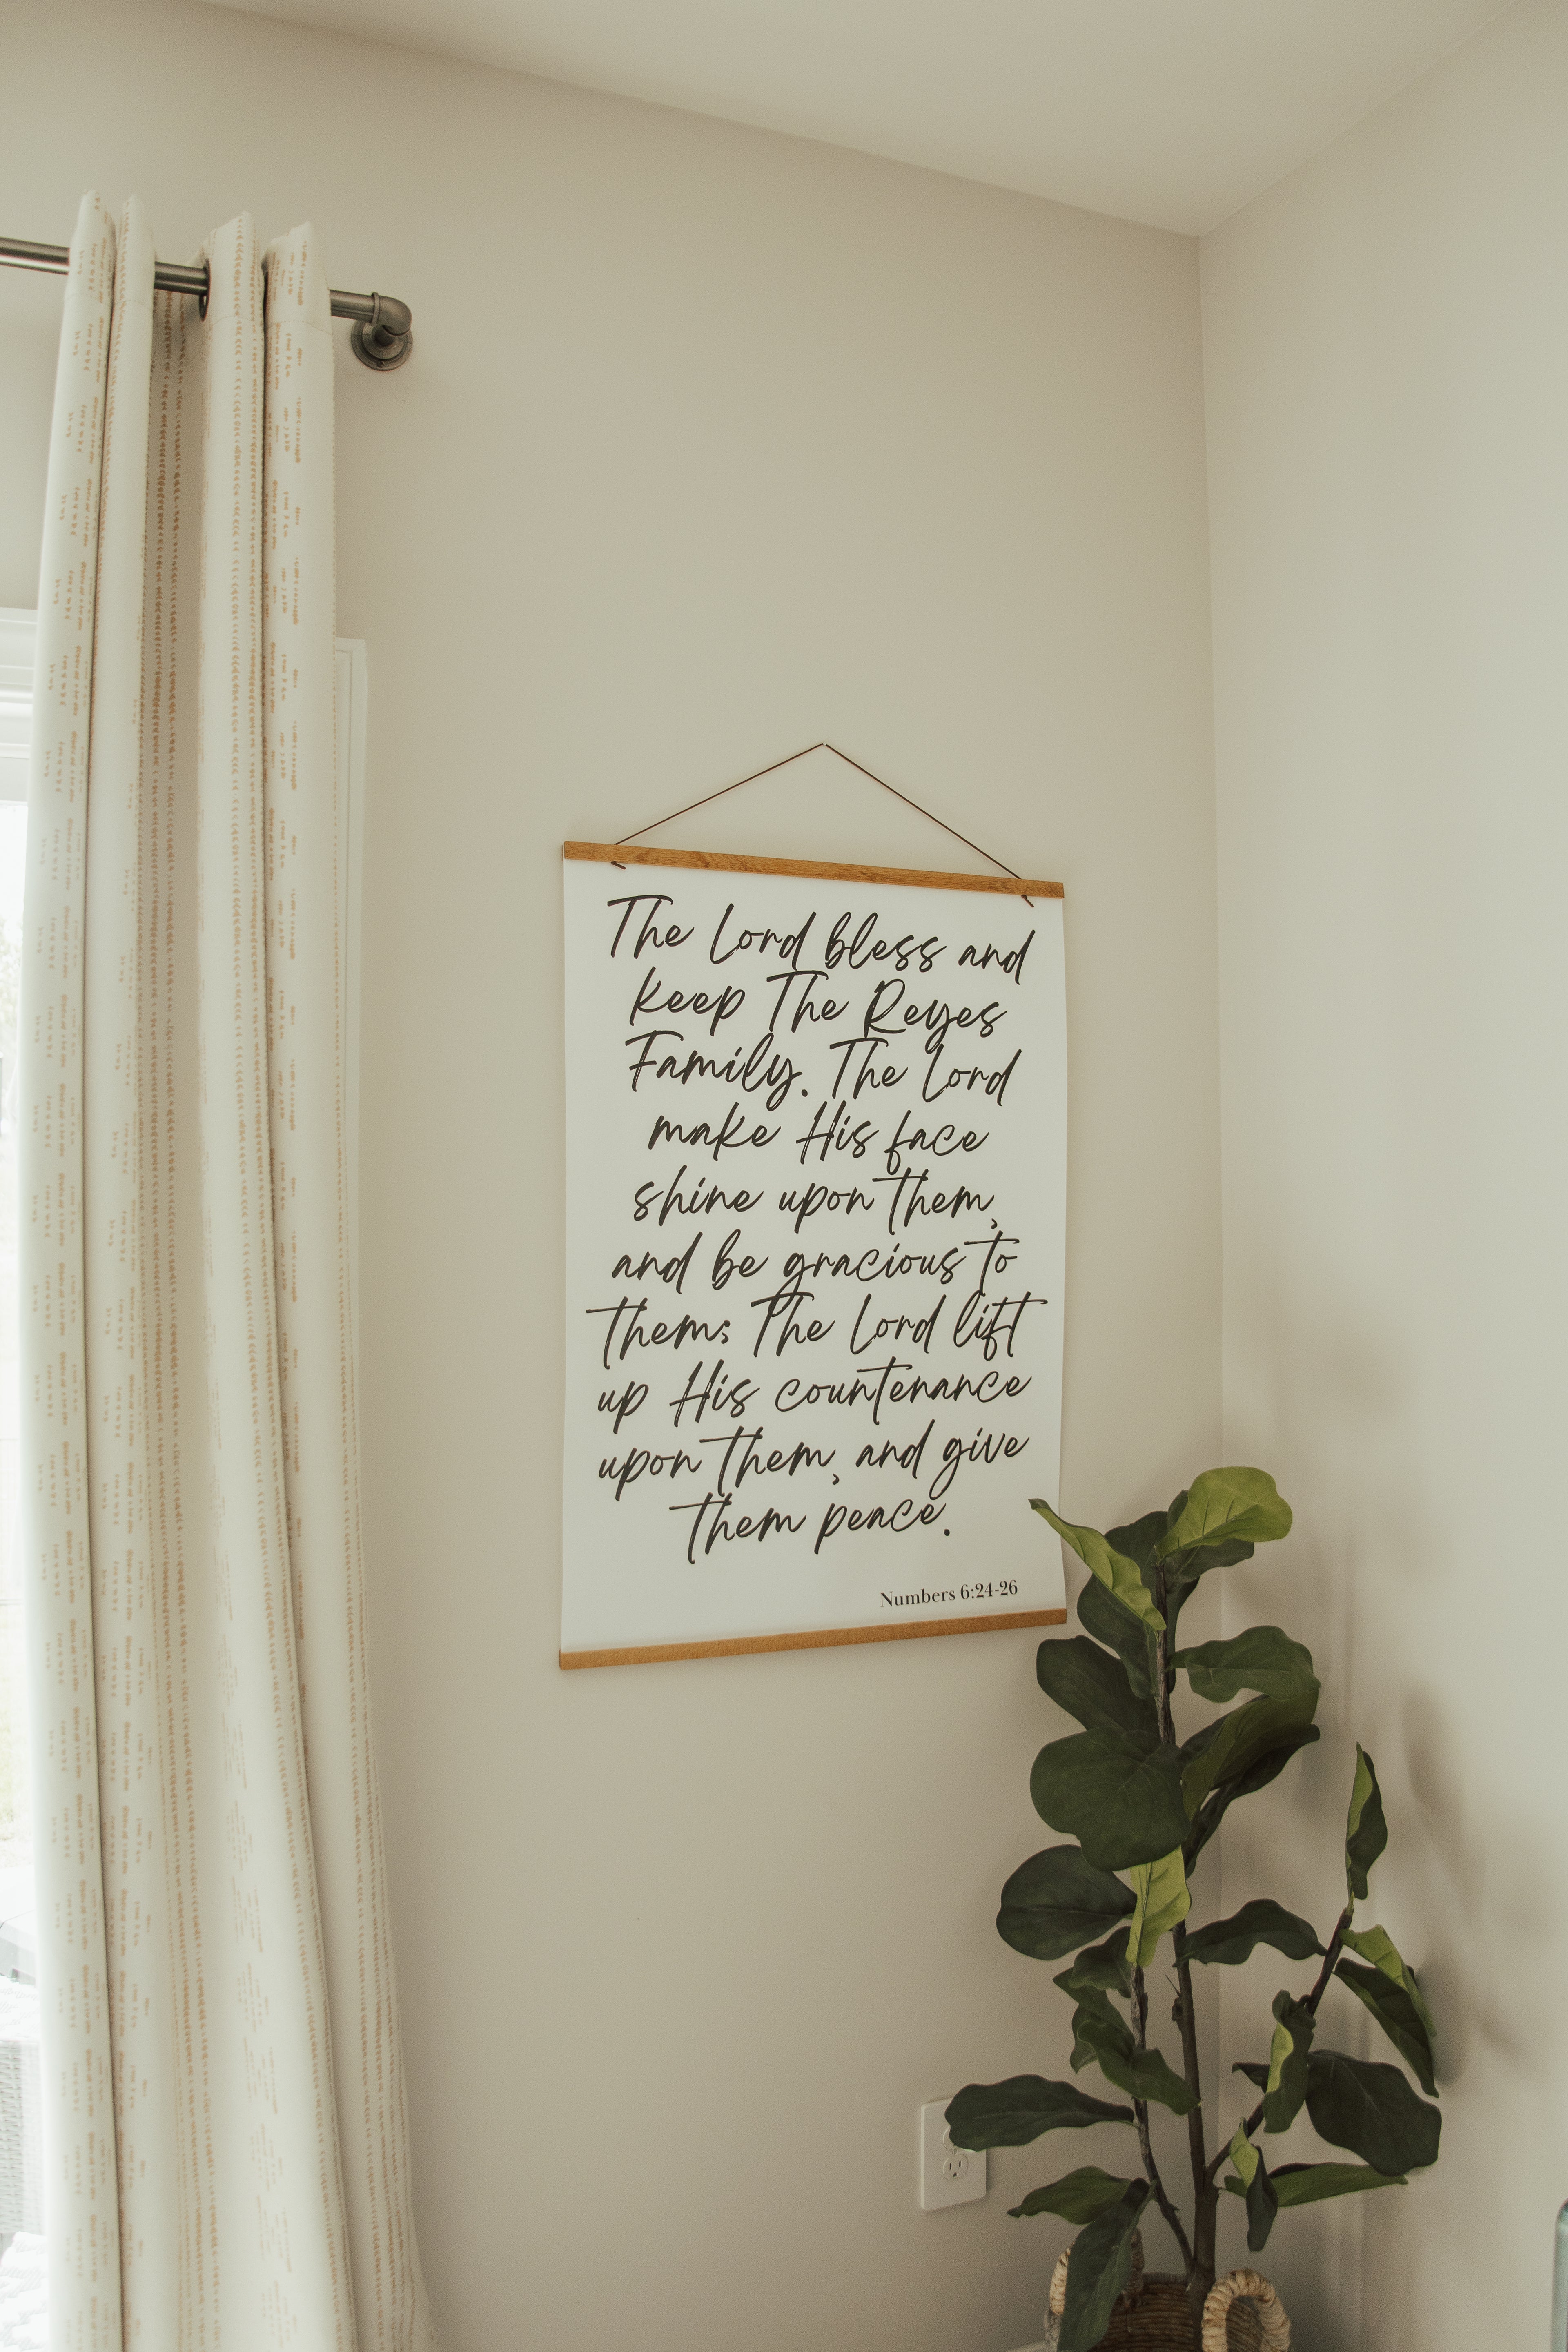 The Lord bless and
keep The Reyes
Family. The Lord
make His face
shine upon them,
and be gracious to
them; The Lord lift
up His countenance
upon them, and give
them peace.
Numbers 6:24-26